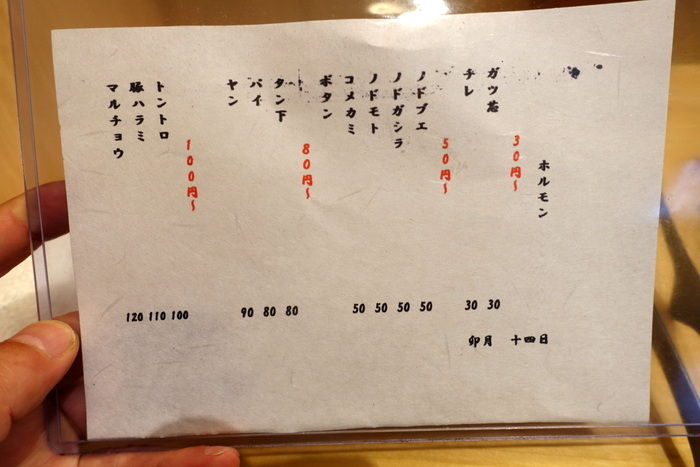 ホルモン
30円～
ガツ芯
チレ
50円～
ノドブエ
ノドガシラ
ノドモト
コメカミ
ボタン
80円～
タン下
パイ
ヤン
100円～
トントロ
豚ハラミ
マルチョウ
120 110 100
90 80 80
50 50 50 50
30 30
卯月 十四日